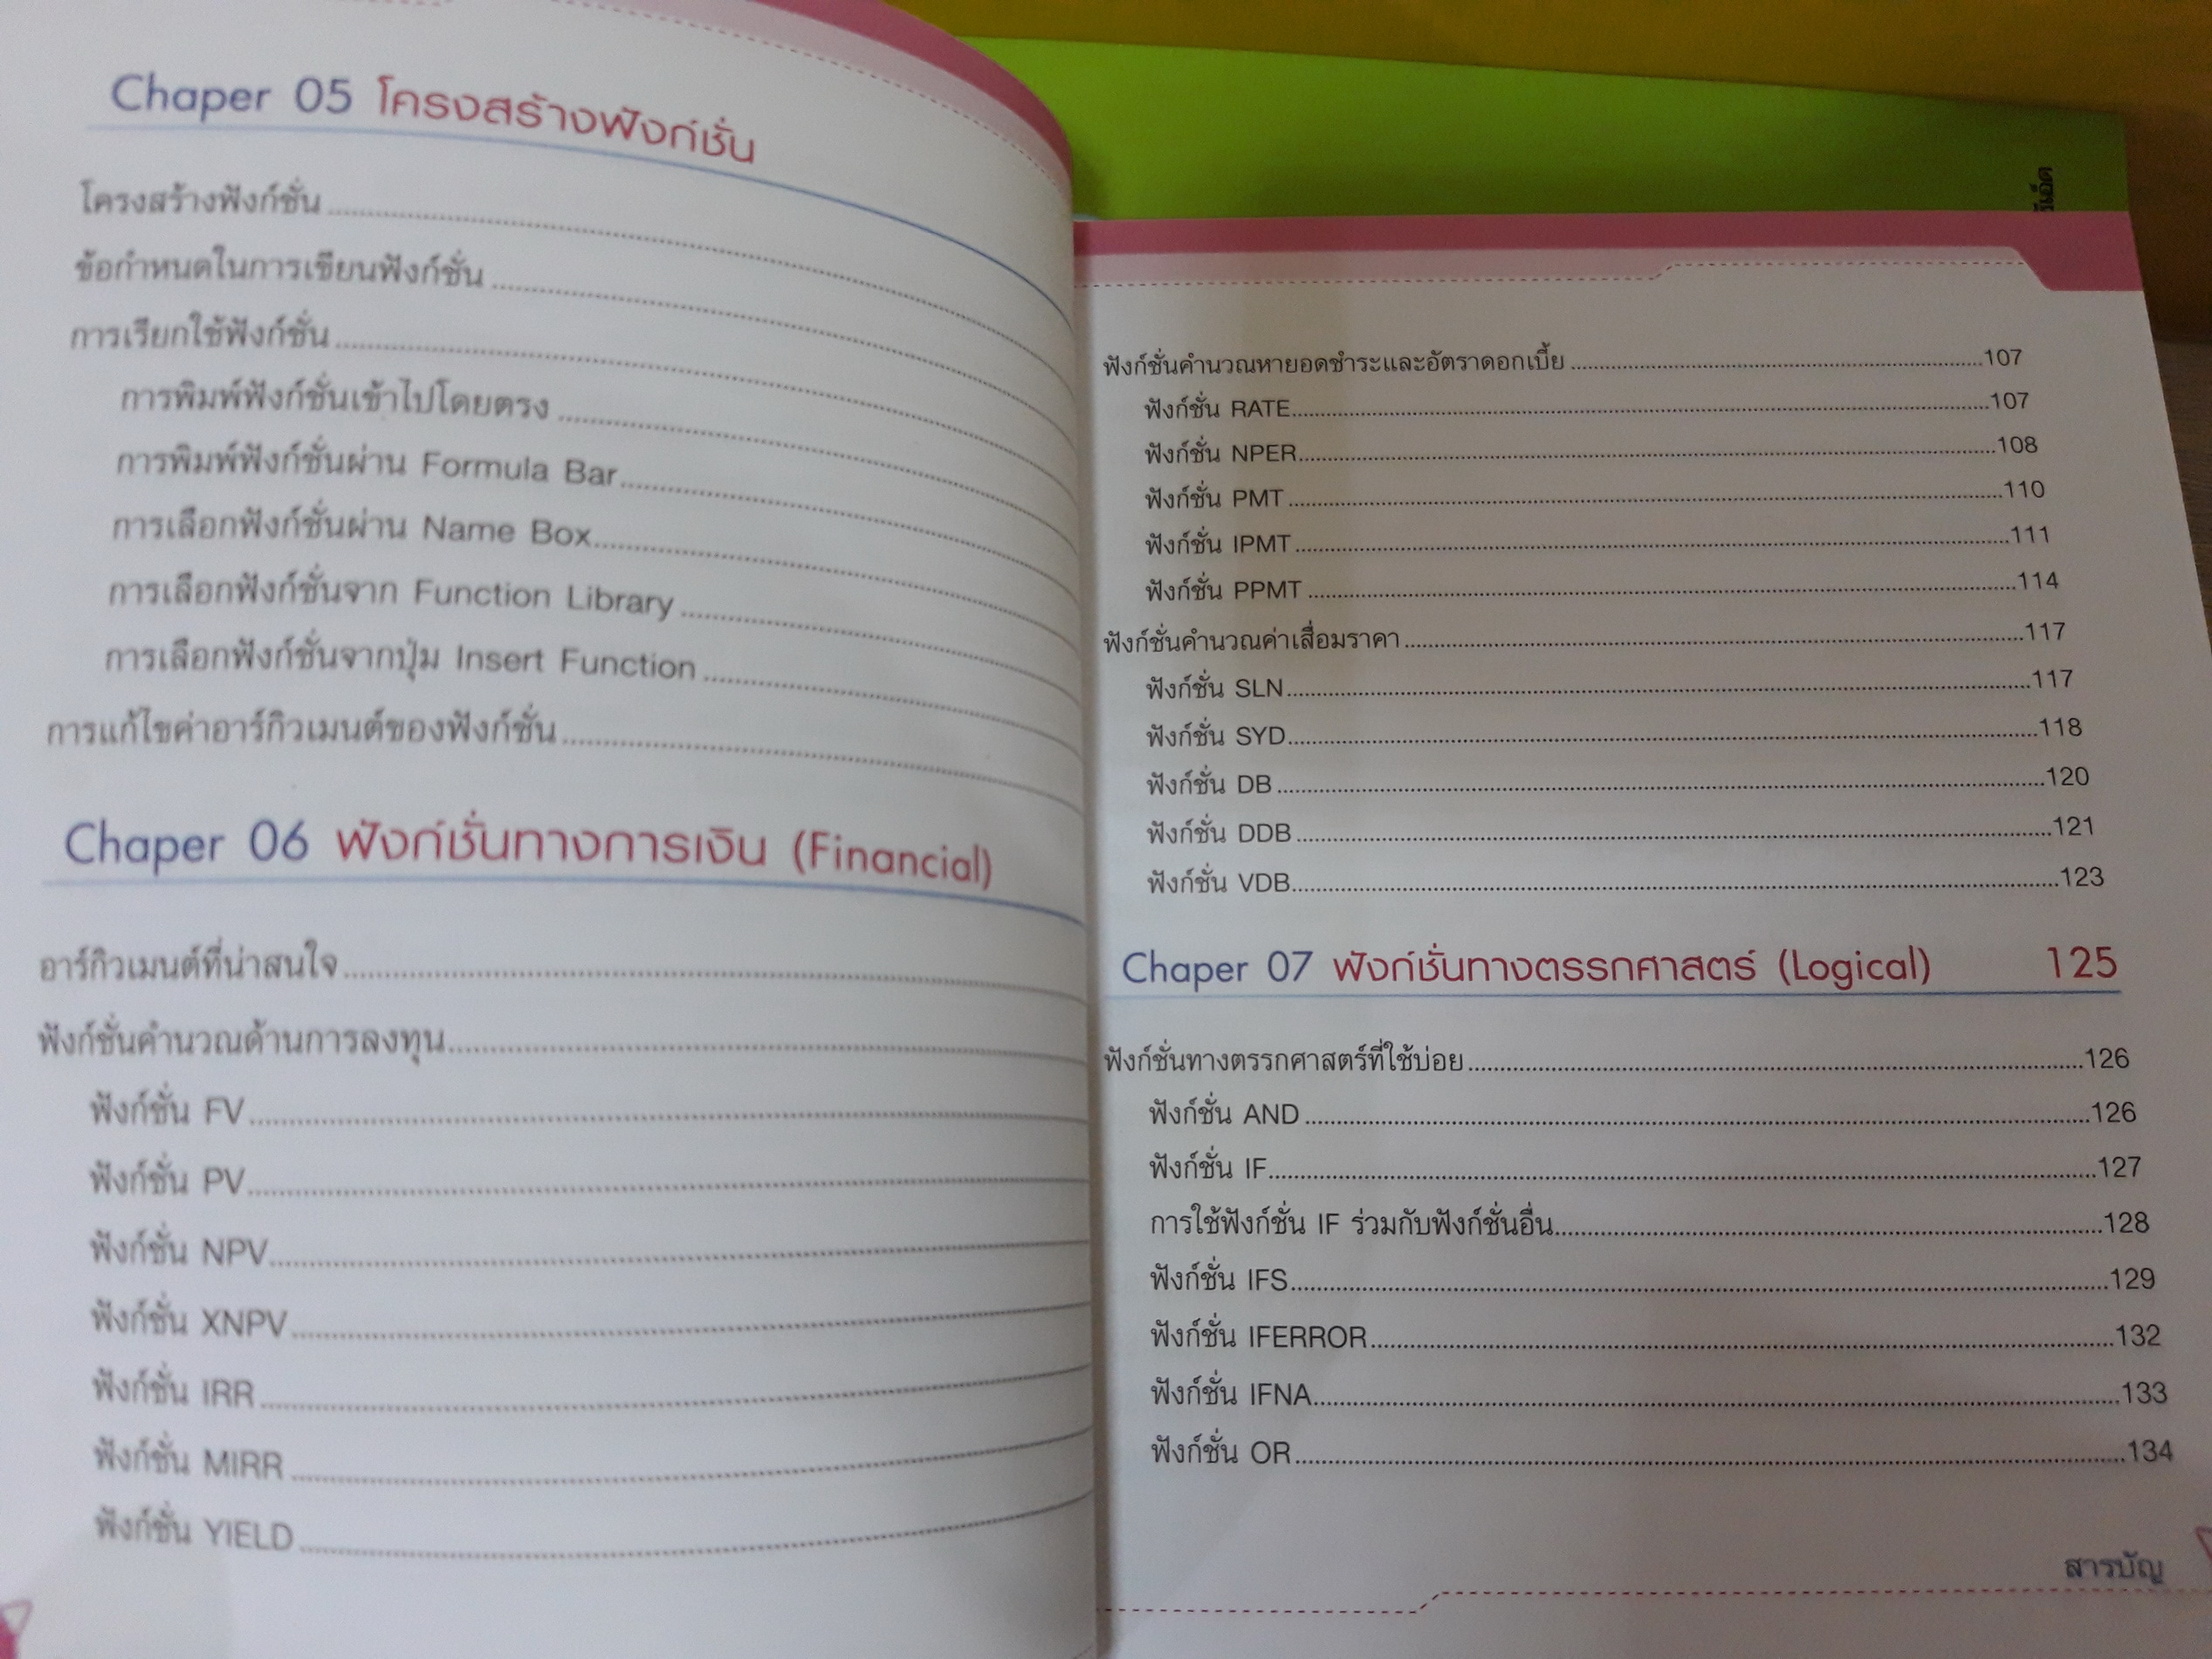 Chaper 05 โครงสร้างฟังก์ชั่น
โครงสร้างฟังก์ชั่น
ข้อกำหนดในการเขียนฟังก์ชั่น
การเรียกใช้ฟังก์ชั่น
การพิมพ์ฟังก์ชั่นเข้าไปโดยตรง
การพิมพ์ฟังก์ชั่นผ่าน Formula Bar
การเลือกฟังก์ชั่นผ่าน Name Box
การเลือกฟังก์ชั่นจาก Function Library
การเลือกฟังก์ชั่นจากปุ่ม Insert Function
การแก้ไขค่าอาร์กิวเมนต์ของฟังก์ชั่น
Chaper 06 ฟังก์ชั่นทางการเงิน (Financial)
อาร์กิวเมนต์ที่น่าสนใจ
ฟังก์ชั่นคำนวณด้านการลงทุน
ฟังก์ชั่น FV
ฟังก์ชั่น PV
ฟังก์ชั่น NPV
ฟังก์ชั่น XNPV
ฟังก์ชั่น IRR
ฟังก์ชั่น MIRR
ฟังก์ชั่น YIELD
ฟังก์ชั่นคำนวณหายอดชำระและอัตราดอกเบี้ย 107
ฟังก์ชั่น RATE 107
ฟังก์ชั่น NPER 108
ฟังก์ชั่น PMT 110
ฟังก์ชั่น IPMT 111
ฟังก์ชั่น PPMT 114
ฟังก์ชั่นคำนวณค่าเสื่อมราคา 117
ฟังก์ชั่น SLN 117
ฟังก์ชั่น SYD 118
ฟังก์ชั่น DB 120
ฟังก์ชั่น DDB 121
ฟังก์ชั่น VDB 123
Chaper 07 ฟังก์ชั่นทางตรรกศาสตร์ (Logical) 125
ฟังก์ชั่นทางตรรกศาสตร์ที่ใช้บ่อย 126
ฟังก์ชั่น AND 126
ฟังก์ชั่น IF 127
การใช้ฟังก์ชั่น IF ร่วมกับฟังก์ชั่นอื่น 128
ฟังก์ชั่น IFS 129
ฟังก์ชั่น IFERROR 132
ฟังก์ชั่น IFNA 133
ฟังก์ชั่น OR 134
สารบัญ